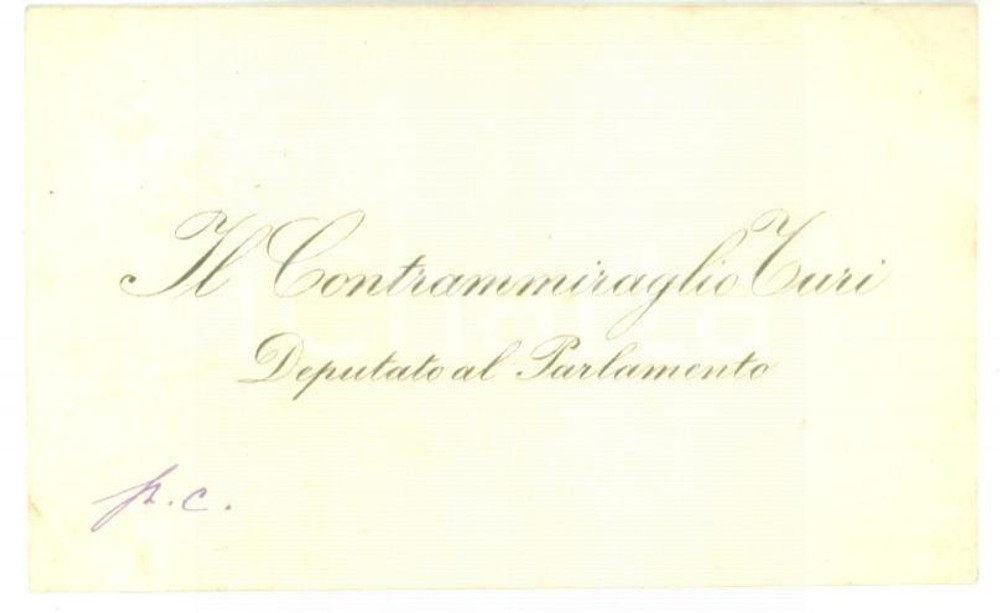 Il Contrammiraglio Turi
Deputato al Parlamento
p.c.